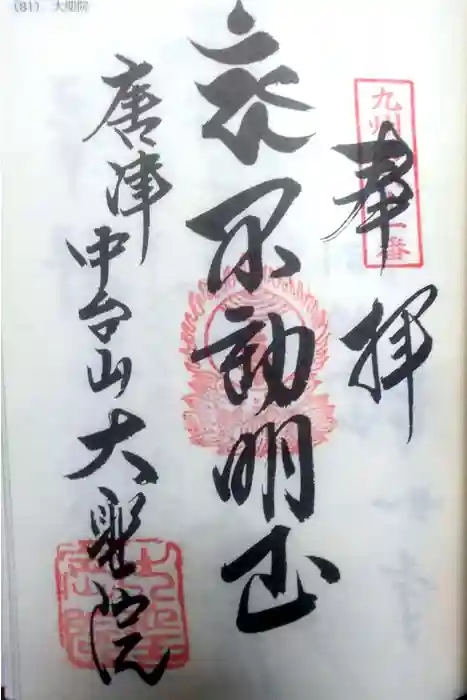 (81) 大聖院
奉拝
九州
一番
不動明王
唐津
中台山大聖院